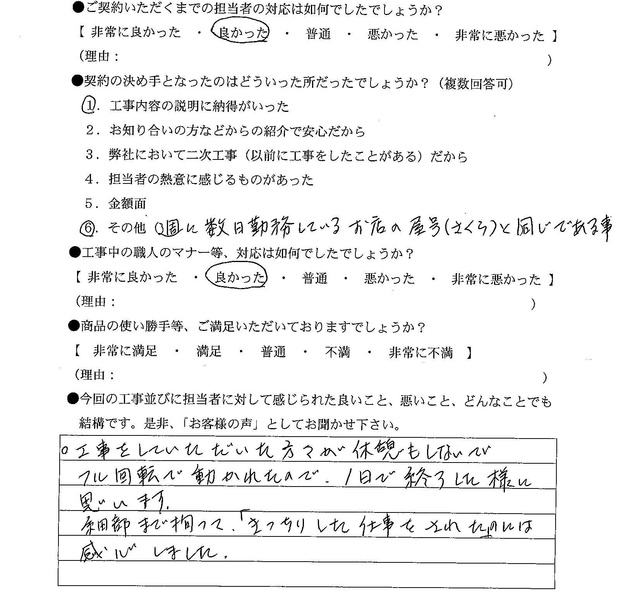 ●ご契約いただくまでの担当者の対応は如何でしたでしょうか？
【 非常に良かった ・ 良かった ・ 普通 ・ 悪かった ・ 非常に悪かった 】
（理由： ）
●契約の決め手となったのはどういった所だったでしょうか？（複数回答可）
①．工事内容の説明に納得がいった
２．お知り合いの方などからの紹介で安心だから
３．弊社において二次工事（以前に工事をしたことがある）だから
４．担当者の熱意に感じるものがあった
５．金額面
⑥．その他 週に数日勤務しているお店の屋号(さくら)と同じである事
●工事中の職人のマナー等、対応は如何でしたでしょうか？
【 非常に良かった ・ 良かった ・ 普通 ・ 悪かった ・ 非常に悪かった 】
（理由： ）
●商品の使い勝手等、ご満足いただいておりますでしょうか？
【 非常に満足 ・ 満足 ・ 普通 ・ 不満 ・ 非常に不満 】
（理由： ）
●今回の工事並びに担当者に対して感じられた良いこと、悪いこと、どんなことでも
結構です。是非、「お客様の声」としてお聞かせ下さい。
○工事をしていただいた方々が休憩もしないで
フル回転で動かれたので、1日で終了した様に
思います。
細部まで拘って、「きっちりした仕事をされた」のには
感心しました。